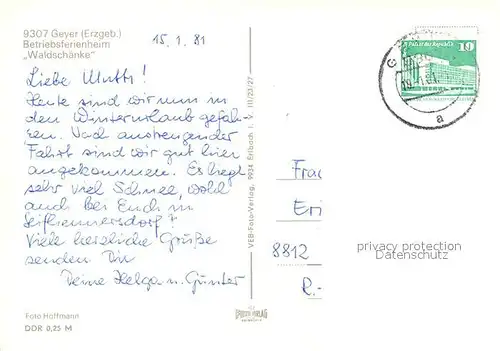 9307 Geyer (Erzgeb.)
Betriebsferienheim
„Waldschänke"
15.1.81
Liebe Mutti!
Heute sind wir nun in
den Winterurlaub gefah-
ren. Nach anstrengender
Fahrt sind wir gut hier
angekommen. Es liegt
sehr viel Schnee, wohl
auch bei Euch in
Seifhennersdorf?
Viele herzliche Grüße
senden Dir
Deine Helga u. Günter
Foto Hoffmann
DDR 0,25 M
VEB-Foto-Verlag, 9934 Erlbach i. V. III/23/27
Palast der Republik
10
DDR
a
Frau
Eri
8812
R.-
privacy protection
Datenschutz